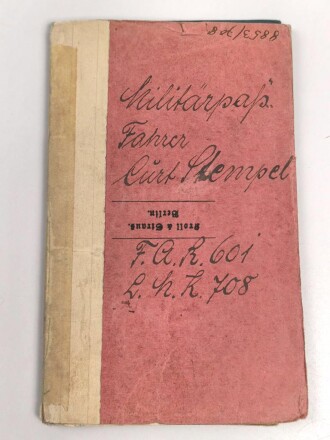 8853/708
Militärpaß.
Fahrer
Curt Stempel
Troll & Straus.
Berlin.
F. A. R. 601
L. M. K. 708